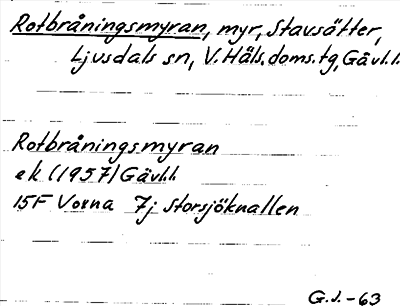 Rotbråningsmyran, myr, Stavsätter,
Ljusdals sn, V. Häls. doms. tg, Gävl. l.
Rotbråningsmyran
ek (1957) Gävl.l.
15F Voxna 7j Storsjöknallen
G.J. -63